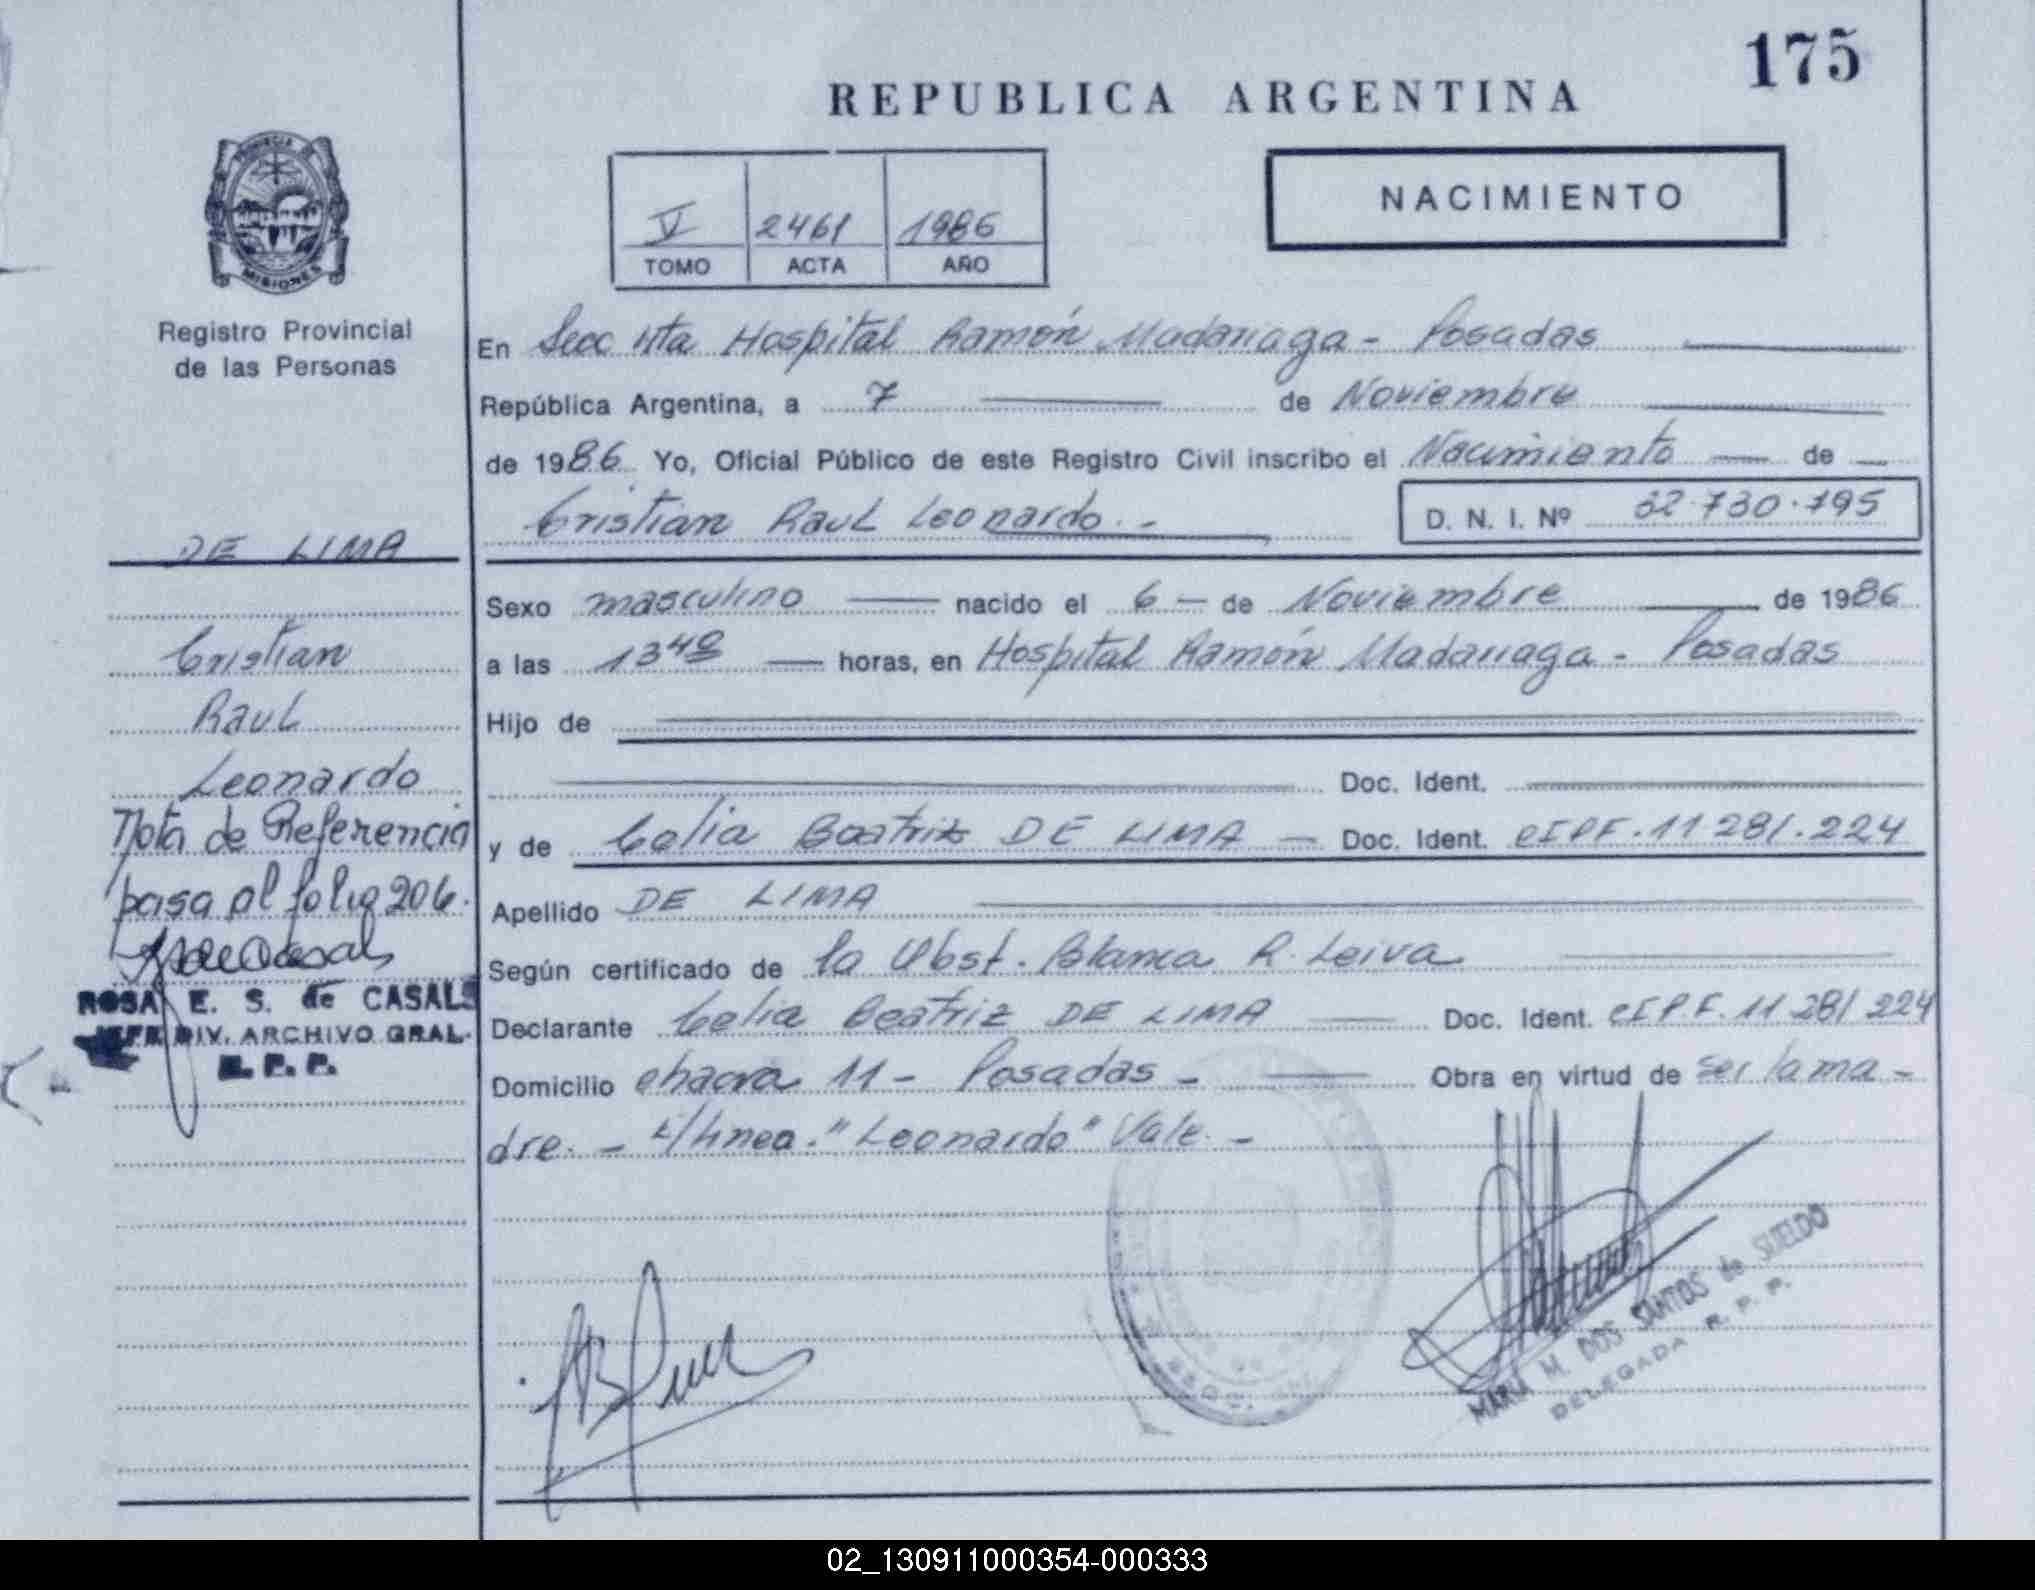 175
REPUBLICA ARGENTINA
NACIMIENTO
V 2461 1986
TOMO ACTA AÑO
PROVINCIA DE
MISIONES
Registro Provincial
de las Personas
En Secc 4ta Hospital Ramón Madariaga - Posadas
República Argentina, a 7 de Noviembre
de 1986 Yo, Oficial Público de este Registro Civil inscribo el Nacimiento de
Cristian Raul Leonardo.-
D. N. I. Nº 32.730.795
DE LIMA
Cristian
Raul
Leonardo
Nota de Referencia
pasa al folio 206.
ROSA E. S. de CASALS
JEFE DIV. ARCHIVO GRAL.
R. P. P.
Sexo masculino nacido el 6 - de Noviembre de 1986
a las 13 40 horas, en Hospital Ramón Madariaga - Posadas
Hijo de
Doc. Ident.
y de Celia Beatriz DE LIMA - Doc. Ident. CIPF.11 281.224
Apellido DE LIMA
Según certificado de la Obst. Blanca R. Leiva
Declarante Celia Beatriz DE LIMA Doc. Ident. CIPF. 11 281 224
Domicilio chacra 11 - Posadas - Obra en virtud de ser la ma-
dre. - E/linea. "Leonardo" Vale. -
MARIA M. DOS SANTOS de SUELDO
DELEGADA R. P. P.
02_130911000354-000333